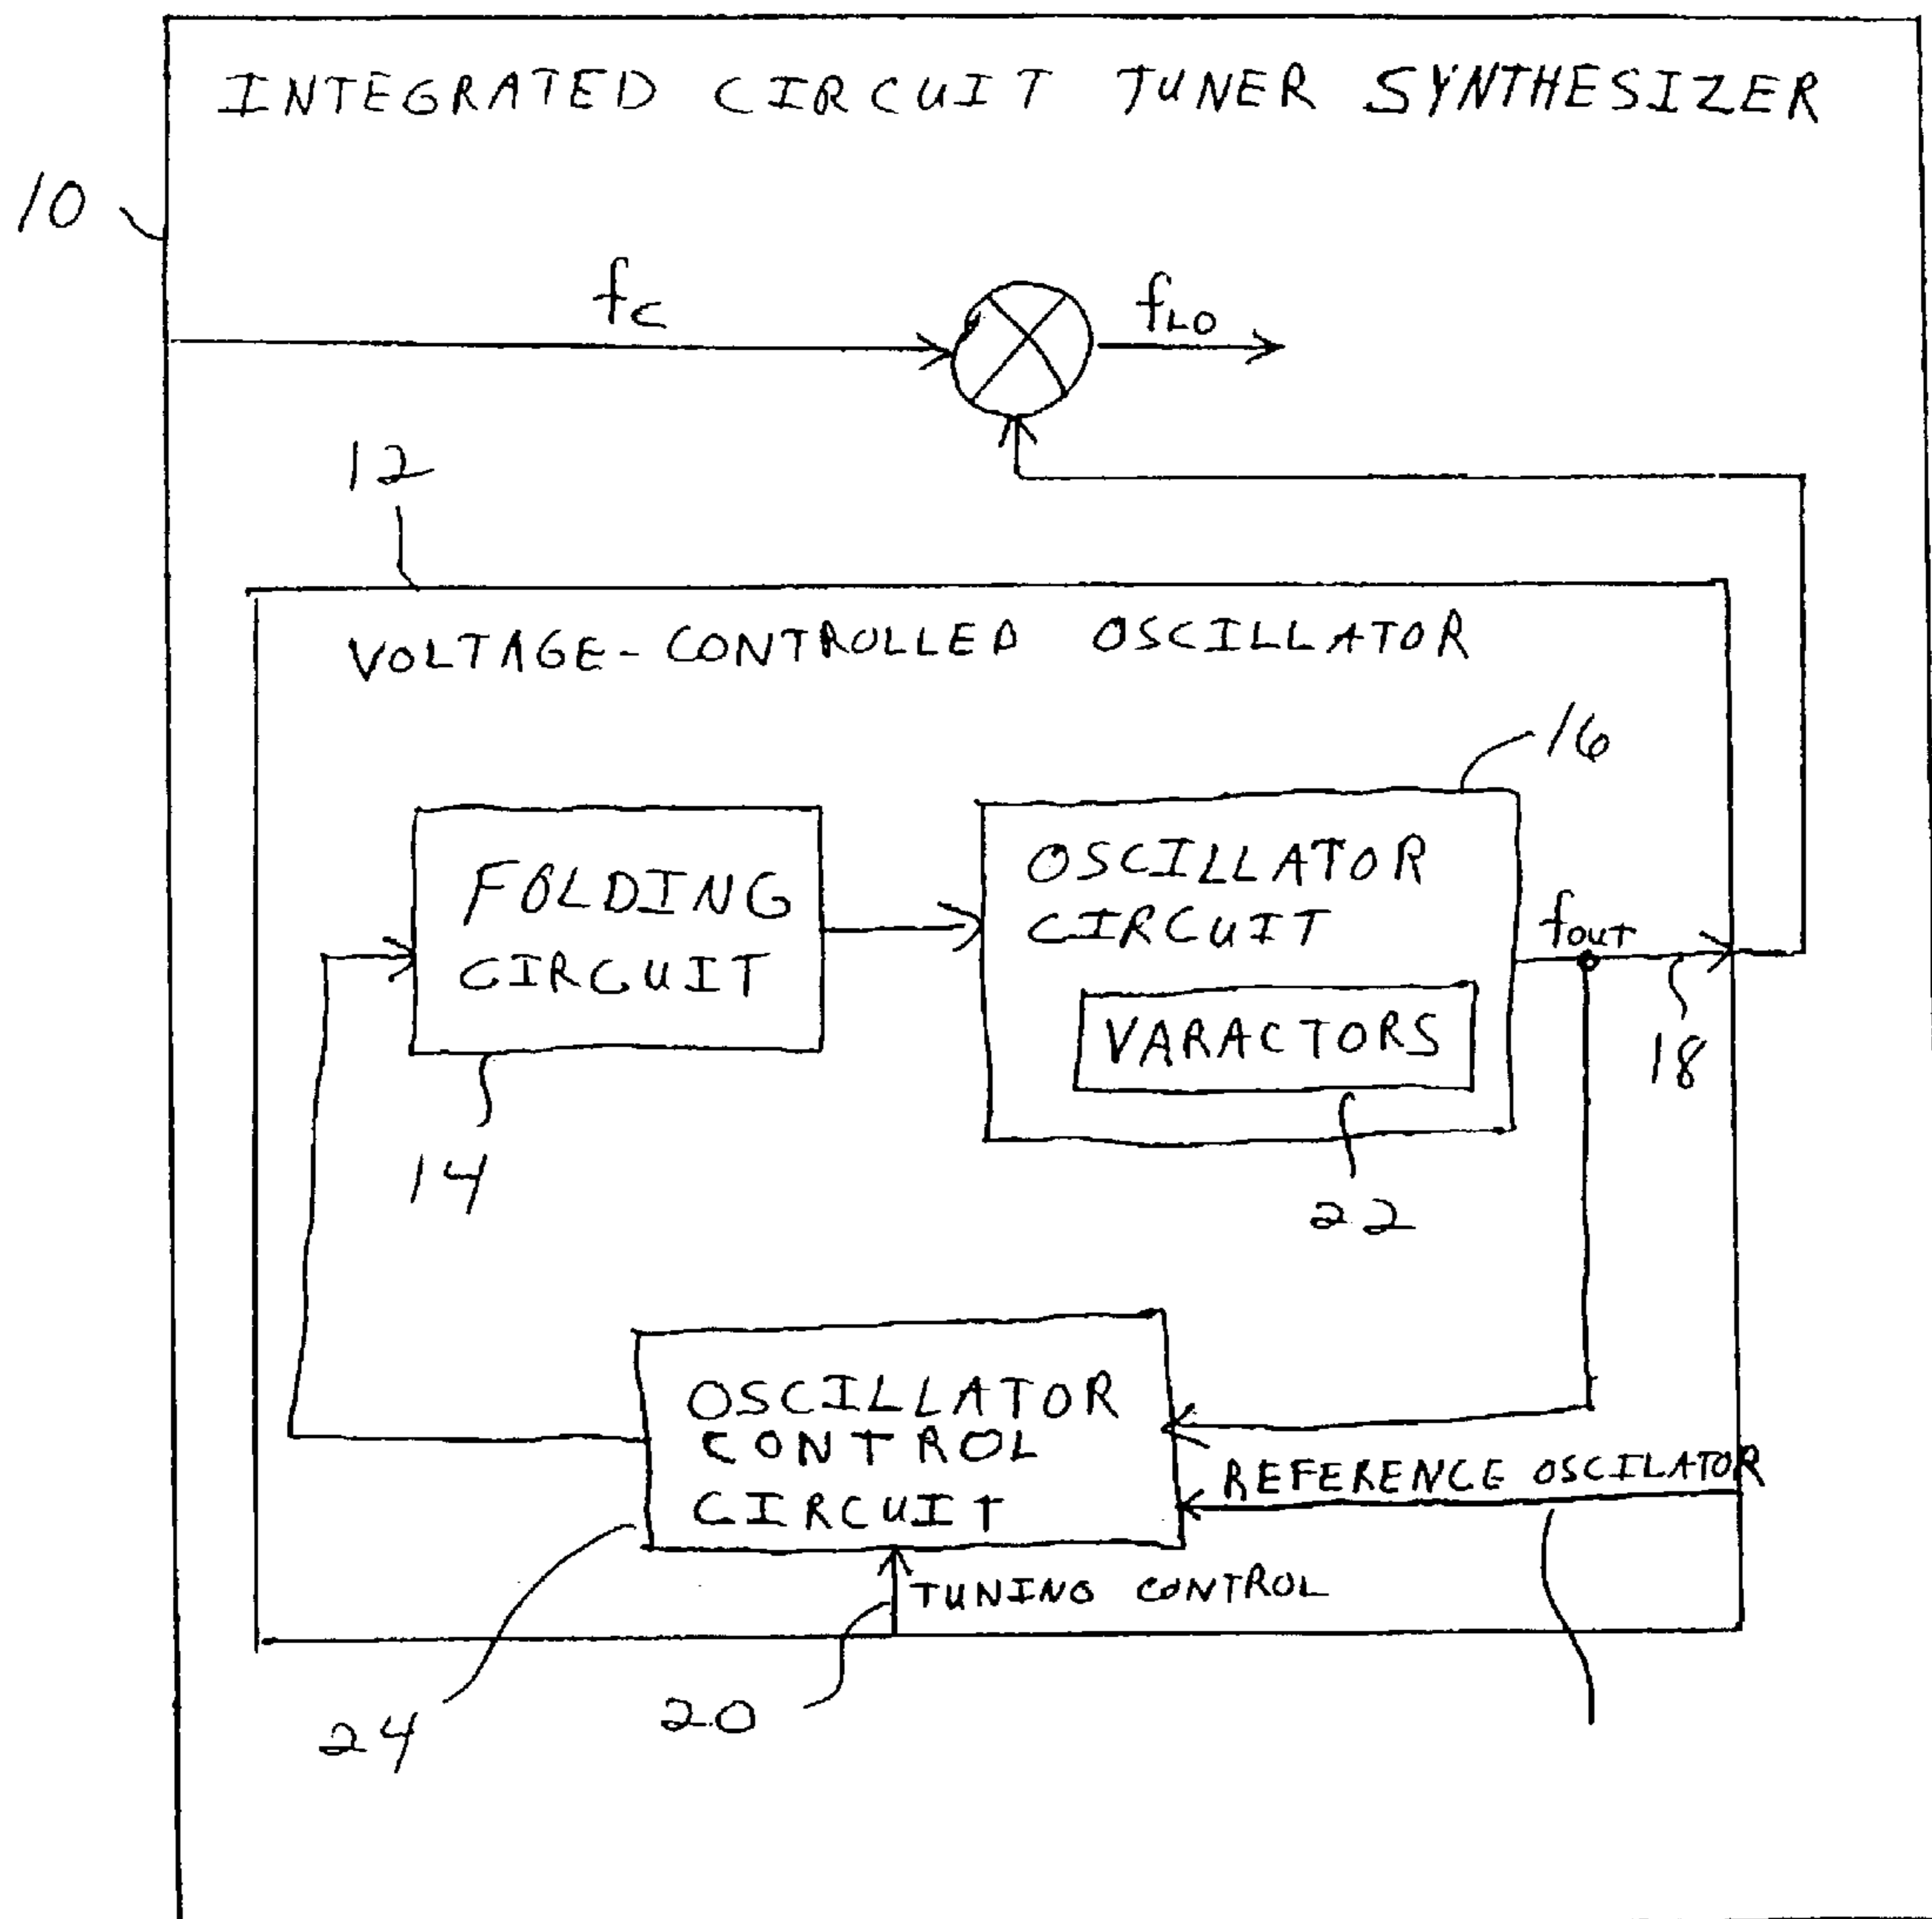 INTEGRATED CIRCUIT TUNER SYNTHESIZER
10
fc
fLO
12
VOLTAGE-CONTROLLED OSCILLATOR
16
FOLDING
CIRCUIT
OSCILLATOR
CIRCUIT
fOUT
VARACTORS
18
14
22
OSCILLATOR
CONTROL
CIRCUIT
REFERENCE OSCILATOR
TUNING CONTROL
24
20